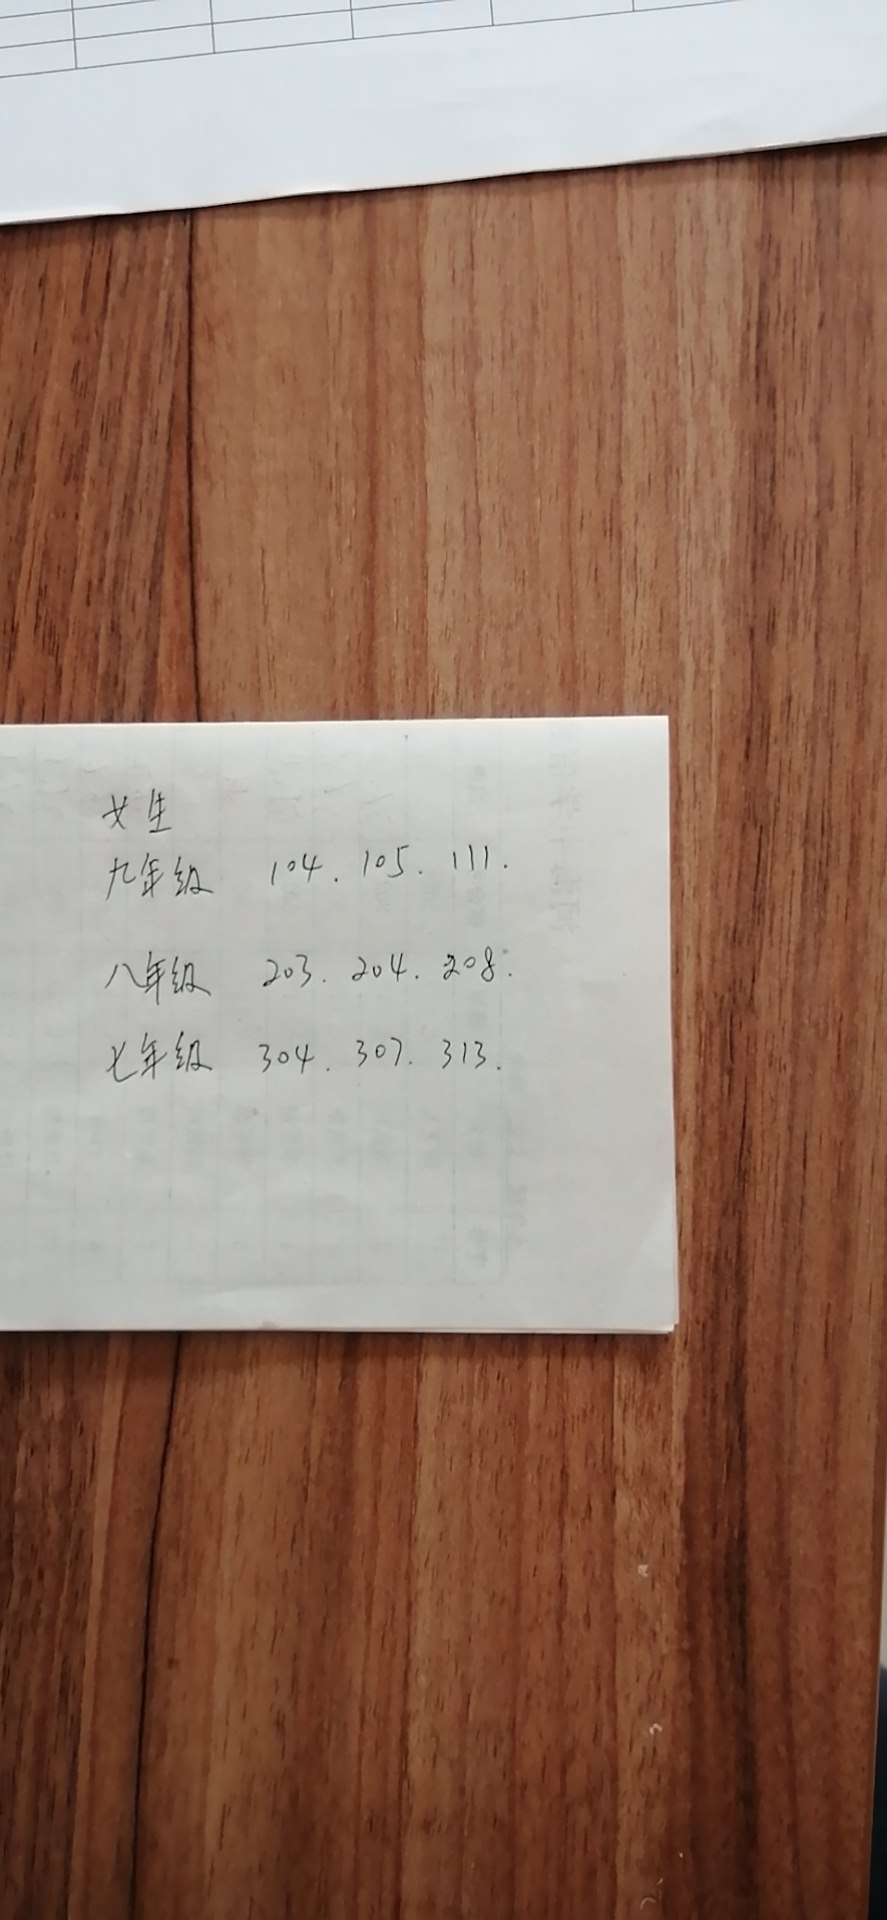 女生
九年级 104. 105. 111.
八年级 203. 204. 208.
七年级 304. 307. 313.